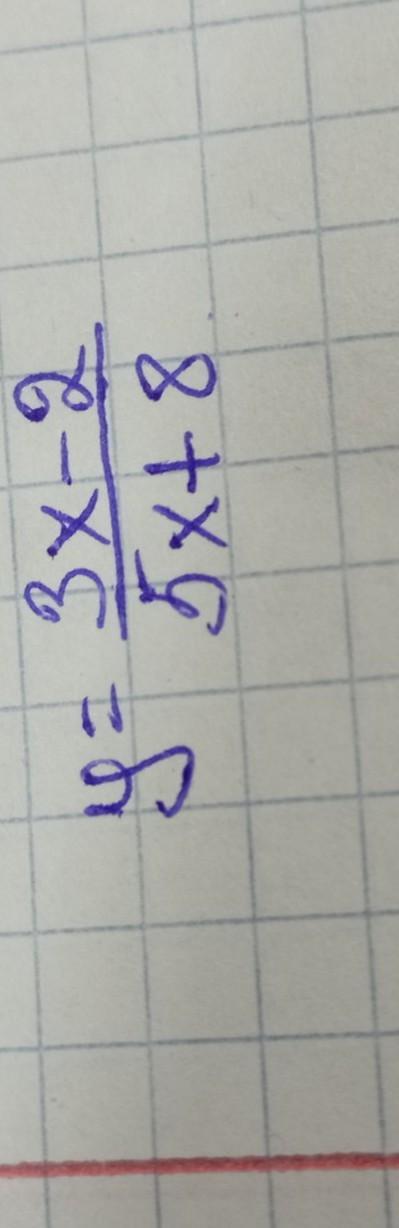 y = \frac{3x-2}{5x+8}